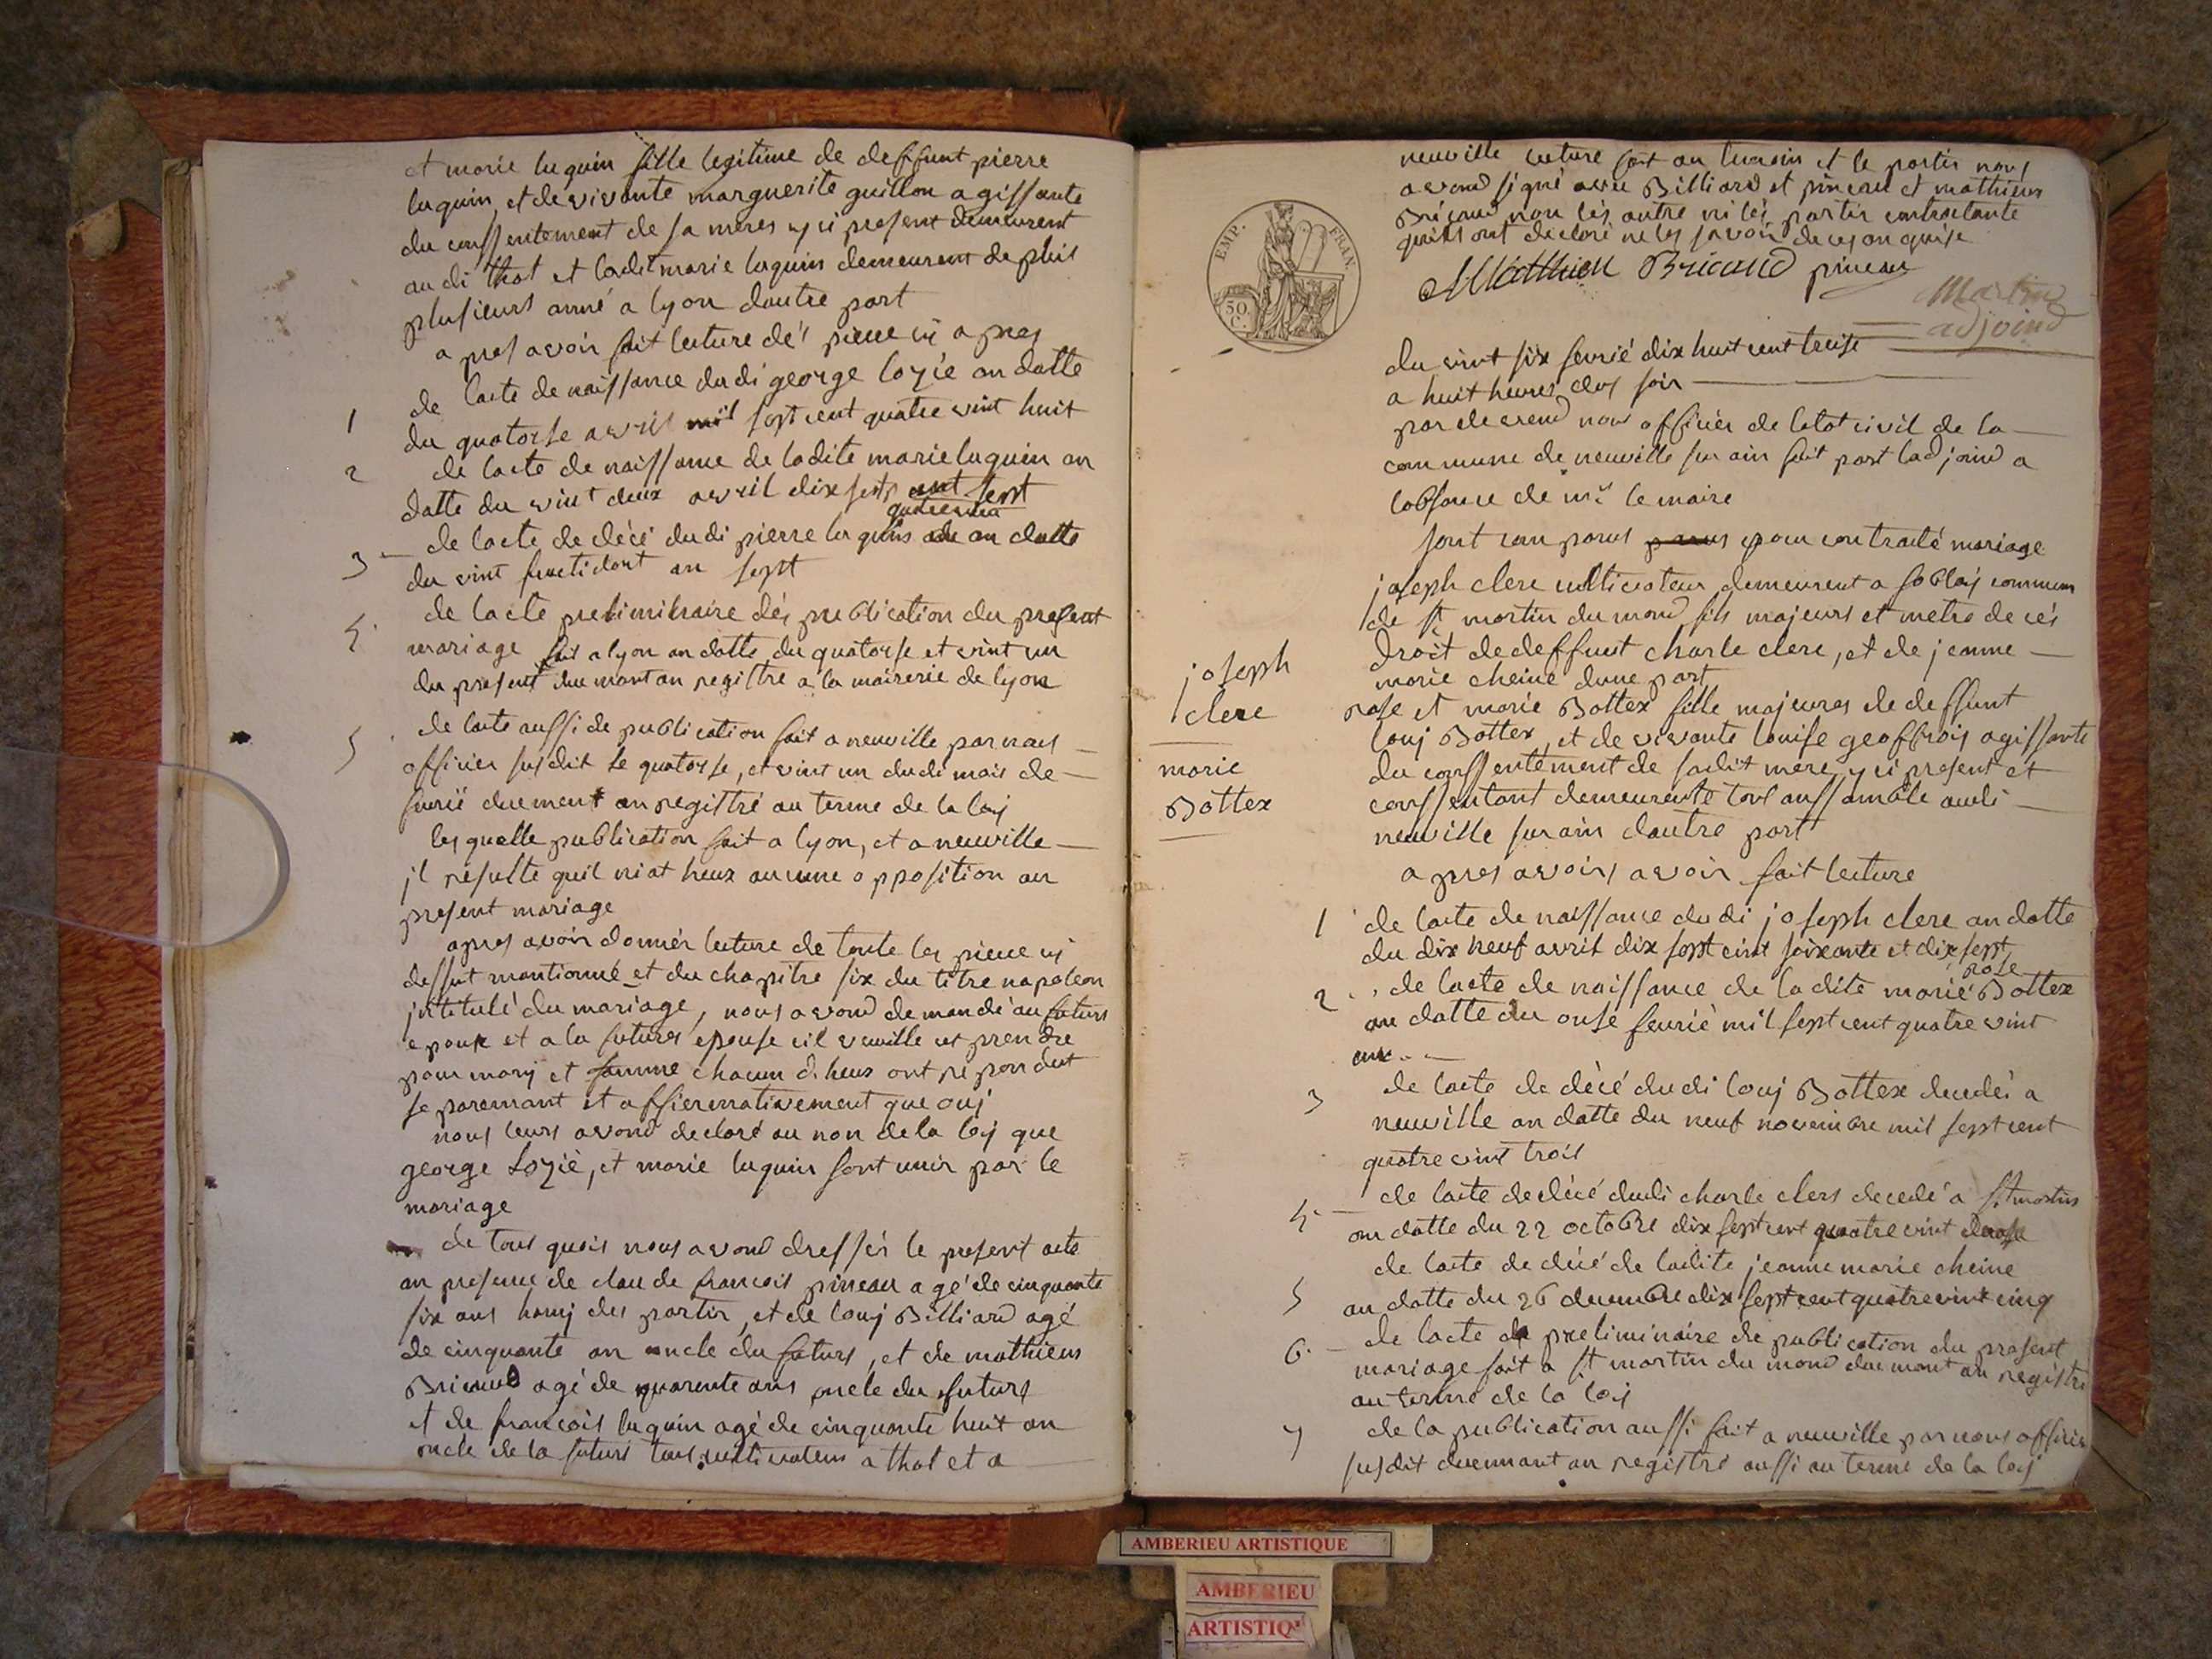 et marie luquin fille legitime de deffunt pierre
luquin, et de vivante marguerite guillon agissante
du conssentement de sa meres y ci present demeurent
audi thol et ladit marie luquin demeurent depuis
plusieurs anné a lyon dautre part
apres avoir fait lecture dés piece ci apres
1 de lacte de naissance dudi george lozié an datte
du quatorse avril mil sept cent quatre vint huit
2 de lacte de naissance de ladite marie luquin an
datte du vint deux avril dix sept cent sept
quatrevint
3 de lacte de décé dudi pierre luquin an datte
du vint fructidort an sept
4 de lacte preliminaire dés publication du present
mariage fait a lyon an datte du quatorse et vint un
du present duemant an registre a la mairerie de lyon
5 de lacte aussi de publication fait a neuville par nous
officier susdit le quatorse, et vint un dudi mois de
fevrié duement an registré au terme de la loij
les quelle publication fait a lyon, et a neuville
jl résulte quil niat heux aucune opposition au
present mariage
apres avoir donnér lecture de toute les piece ci
dessut mantionné et du chapitre six du titre napoleon
jntitulé du mariage, nous avond demandé au futurs
epoux et a la futures epouse cil veuille ce prendre
pour marij et famme chacun dheux ont repondut
separemant et affiermativement que ouj
nous leurs avond declaré au non de la loij que
george Lozié, et marie luquin sont unir par le
mariage
de tous quois nous avond dressér le present acte
an presence de claude francois pineau agé de cinquante
six ans hamij des partir, et de louj Billiard agé
de cinquante an oncle du futurs, et de mathieus
Bricaud agé de quarente ans oncle du futurs
et de francois luquin agé de cinquante huit an
oncle de la futurs tous cultivateur a thol et a
neuville lecture fait au temoin et le partir nous
avond signé avec Billiard et pineau et mathieus
Bricaud non lés autre ni lés partir contractante
quils ont declaré ne les savoir de ces anquise
EMP. FRAN.
50 C.
Matthieu Bricaud pineau
Martin
adjoind
du vint six fevrié dix huit cent treise
a huit heures dus soir
par devend nous officiér de letat civil de la
commune de neuville sur ain fait part ladjoind a
labsance de mr. le maire
sont comparus pour contracté mariage
joseph clere cultivateur demeurent a soblaij commun
de st martin du mond fils majeurs et metre de cés
droit de deffunt charle clere, et de jeanne
marie cheine dune part
joseph
clere
marie
Bottex
rose et marie Bottex fille majeures de deffunt
louj Bottex, et de vivante louise geoffroij agissante
du conssentement de sadit mere y ci present et
conssentant demeurente tout anssamble audi
neuville sur ain dautre part
apres avoirs avoir fait lecture
1 de lacte de naissance dudi joseph clere an datte
du dix neuf avril dix sept cent soixante et dix sept
rose
2 de lacte de naissance de ladite marie Bottex
an datte du onse fevrié mil sept cent quatre vint
3 de lacte de décé dudi louj Bottex decedéi a
neuville an datte du neuf novembre mil sept cent
quatre vint trois
4 de lacte de décé dudi charle clers decedé a st martin
an datte du 22 octobre dix sept cent quatre vint
de lacte de décé de ladite jeanne marie cheine
5 an datte du 26 decembre dix sept cent quatre vint cinq
6. de lacte de preliminaire de publication du present
mariage fait a st martin du mond duemant an registré
au terme de la loij
7 de la publication aussi fait a neuville par nous officier
susdit duemant an registré aussi au terme de la loij
AMBERIEU ARTISTIQUE
AMBERIEU
ARTISTIQU